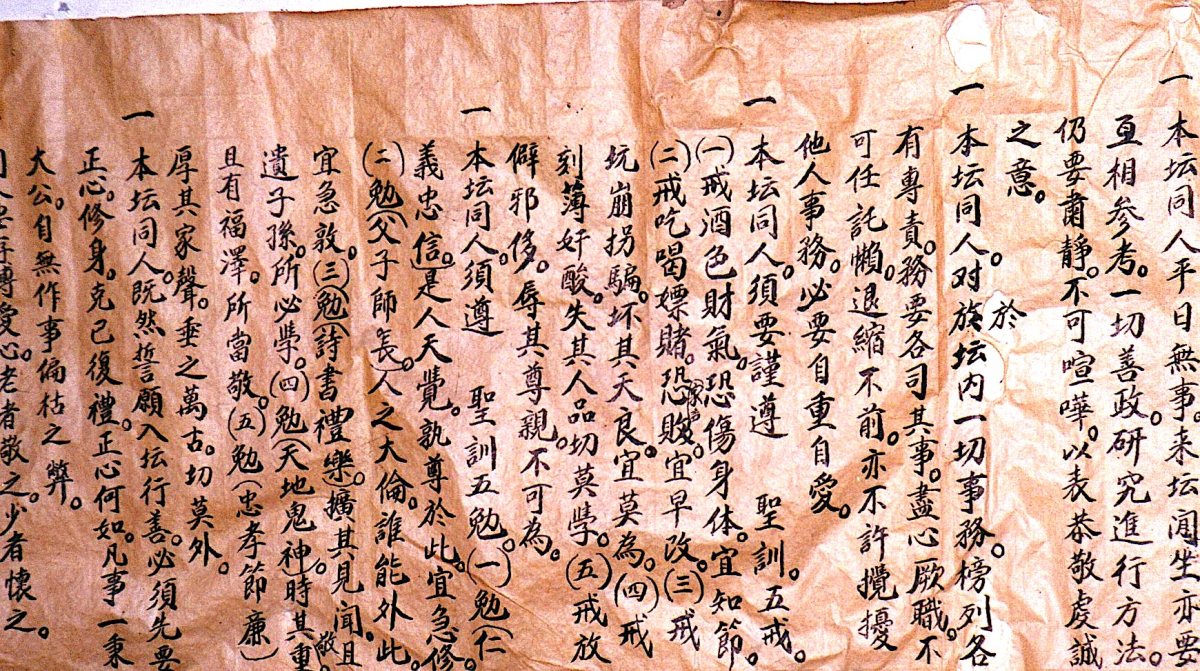 一本坛同人平日無事来坛閒坐亦要
互相参考。一切善政。研究進行方法。
仍要肅靜。不可喧嘩。以表恭敬虔誠
之意。
一本坛同人对於族坛内一切事務。榜列各
有專責。務要各司其事。盡心厥職。不
可任託懶。退縮不前。亦不許攪擾
他人事務。必要自重自愛。
一本坛同人。須要謹遵 聖訓。五戒。
(一)戒酒色財氣。恐傷身体。宜知節。
(二)戒吃喝嫖賭。恐敗。宜早改。(三)戒
坑崩拐騙。坏其天良。宜莫為。(四)戒
刻薄奸酸。失其人品。切莫學。(五)戒放
僻邪侈。辱其尊親。不可為。
一本坛同人。須遵 聖訓五勉。(一)勉(仁
義忠信)。是人天覺。孰尊於此。宜急修。
(二)勉(父子師長)。人之大倫。誰能外此。
宜急敦。(三)勉(詩書禮樂。擴其見聞。且
遺子孫。所必學。(四)勉(天地鬼神)。時其重敬
且有福澤。所當敬。(五)勉(忠孝節廉)
厚其家聲。垂之萬古。切莫外。
一本坛同人。既然誓願入坛行善。必須先要
正心。修身。克己復禮。正心何如。凡事一秉
大公。自無作事偏枯之弊。
博愛心。老者敬之。少者懷之。